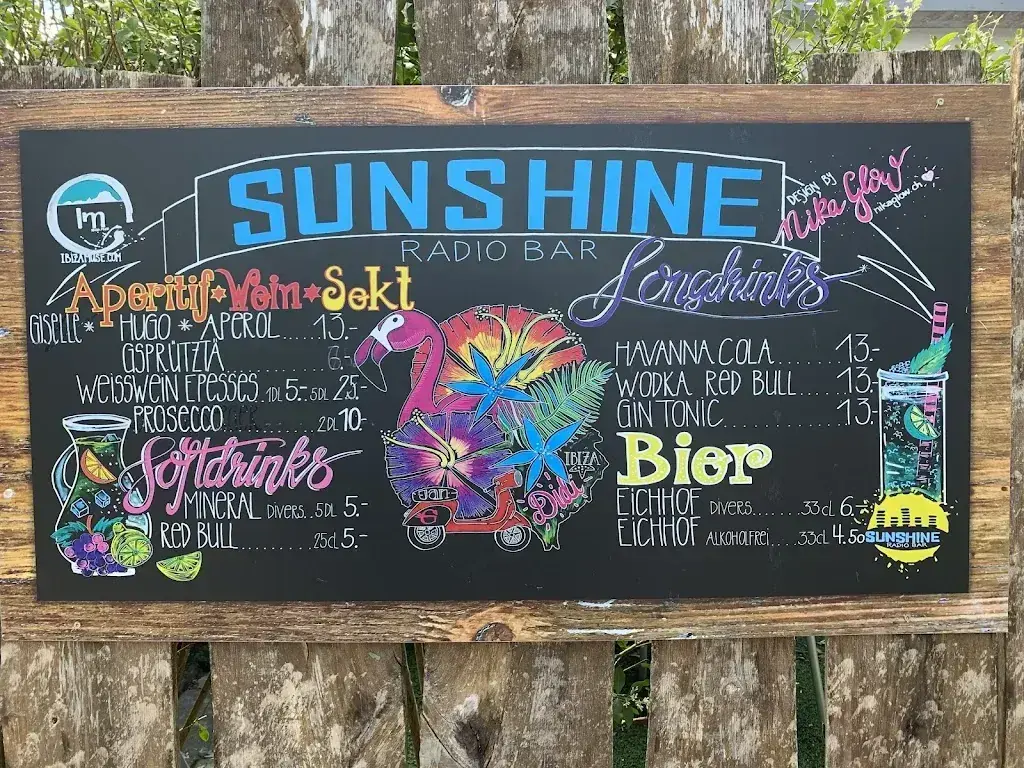 SUNSHINE
RADIO BAR
Im
IBIZAMUSE.COM
DESIGN BY
Nika Glow
nikaglow.ch
Aperitif*Wein*Sekt
GISELLE * HUGO * APEROL.....13.-
GSPRÜTZTÄ.....6.-
WEISSWEIN EPESSES.1DL 5.- 5DL 25.-
PROSECCO.....2DL 10.-
Softdrinks
MINERAL DIVERS..5DL 5.-
RED BULL.....25cL 5.-
IBIZA
Longdrinks
HAVANNA COLA.....13.-
WODKA RED BULL.....13.-
GIN TONIC.....13.-
Bier
EICHHOF DIVERS.....33cL 6.-
EICHHOF ALKOHOLFREI....33cL 4.50
SUNSHINE
RADIO BAR